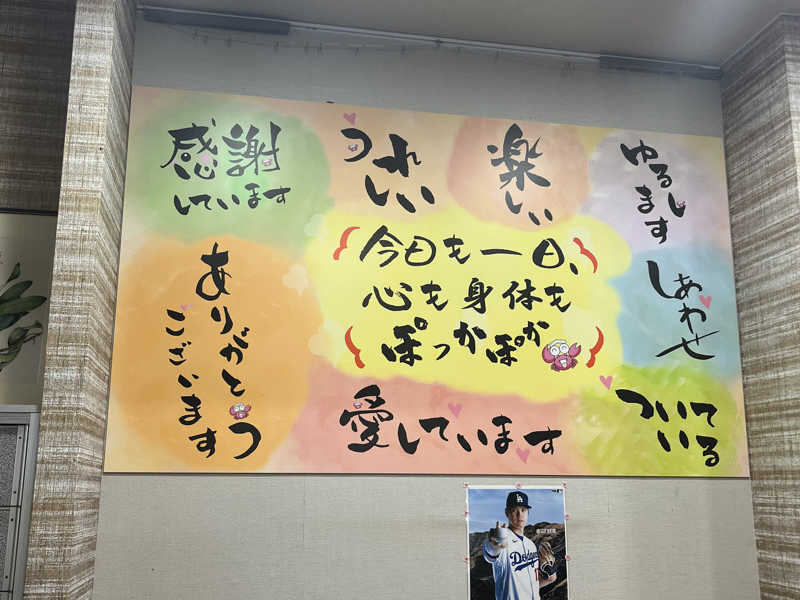 感謝
しています
うれしい
楽しい
ゆるします
今日も一日、
心も身体も
ぽっかぽか
しあわせ
ありがとう
ございます
愛しています
ついている
LA
Dodgers